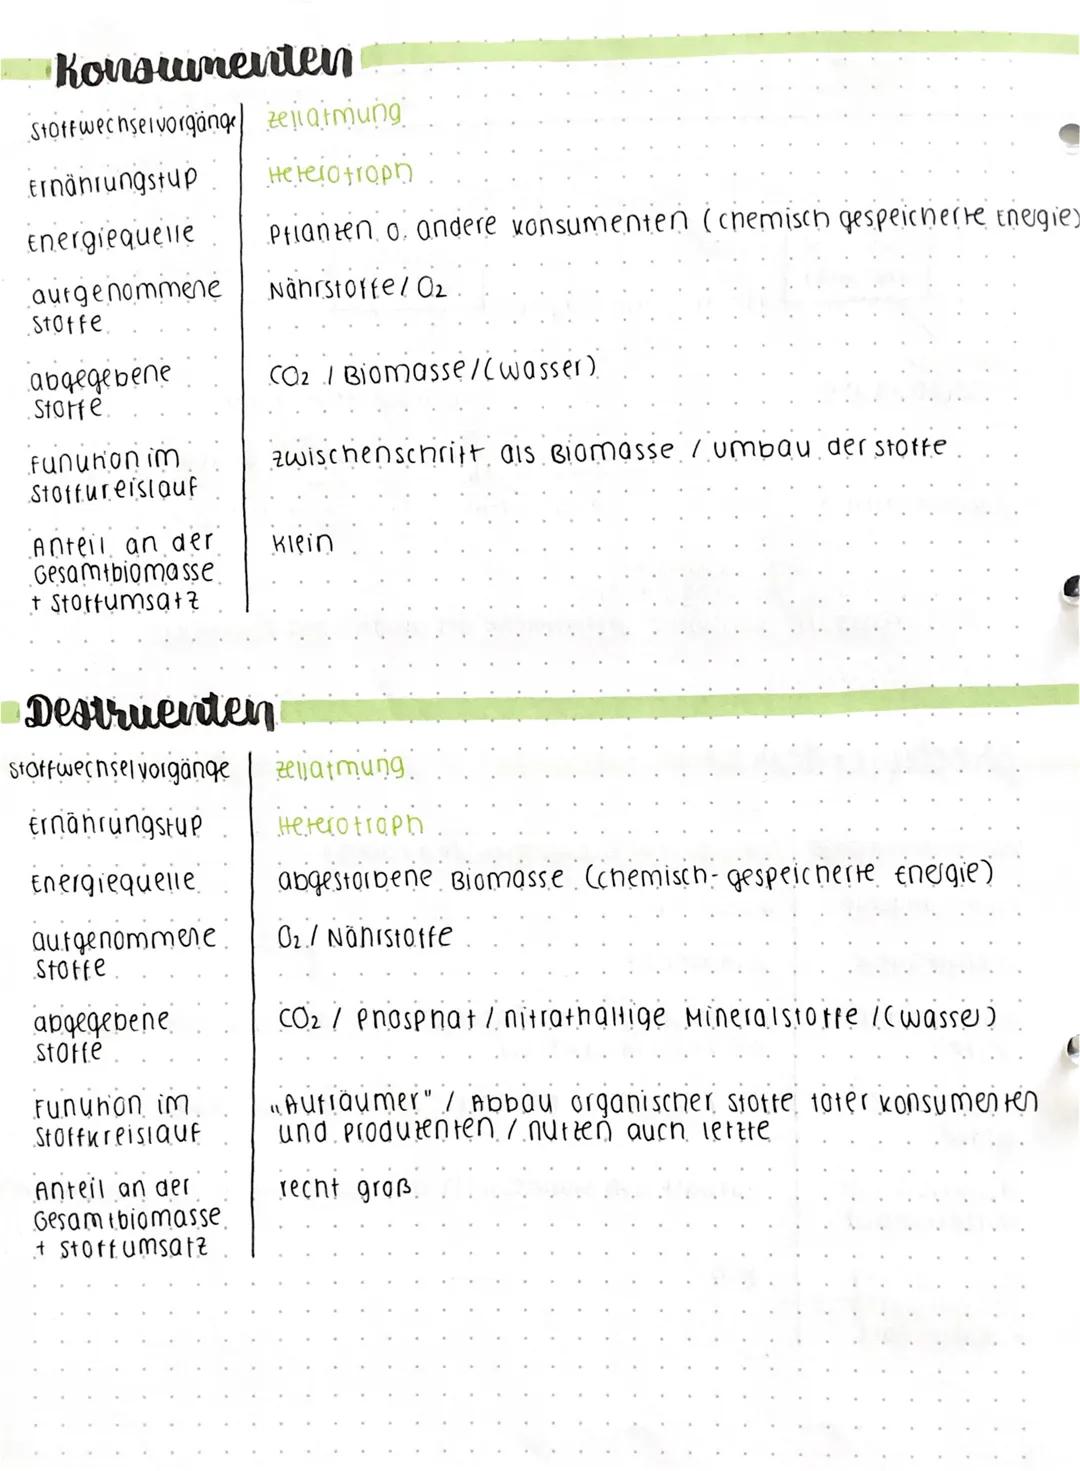 Konsumenten
Stoffwechselvorgänge Zellatmung
Ernährungstyp Heterotroph
Energiequelle Pflanzen o. andere Konsumenten (chemisch gespeicherte Energie)
aufgenommene Nährstoffe / O2
Stoffe
abgegebene CO2 / Biomasse / (Wasser)
Stoffe
Funktion im Zwischenschritt als Biomasse / Umbau der Stoffe
Stoffkreislauf
Anteil an der Klein
Gesamtbiomasse
+ Stoffumsatz
Destruenten
Stoffwechselvorgänge Zellatmung
Ernährungstyp Heterotroph
Energiequelle abgestorbene Biomasse (chemisch-gespeicherte Energie)
aufgenommene O2 / Nährstoffe
Stoffe
abgegebene CO2 / Phosphat / nitrathaltige Mineralstoffe / (Wasser)
Stoffe
Funktion im „Aufräumer" / Abbau organischer Stoffe toter Konsumenten
Stoffkreislauf und Produzenten / nutzen auch letzte
Anteil an der recht groß
Gesamtbiomasse
+ Stoffumsatz